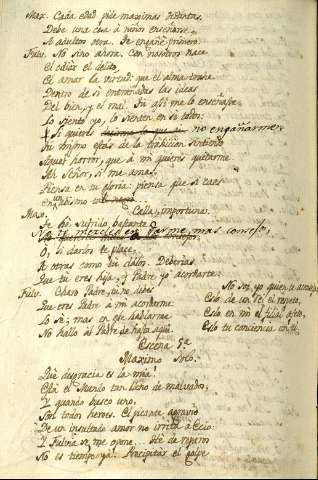 Max. Cada edad pide maximas distintas.
Debe una cosa á niños enseñarse,
A adultos otra. Te engañé primero.
Fulv. No sino ahora. Con nosotros nace
El odio al delito,
El amar la virtud: que el alma
Dentro de sí las ideas
Del bien, y el mal. Tú así me lo enseñaste
Lo siento yo, lo sienten en su
Si quieres no engañarme
Tú mismo estás de la traicion sintiendo
Aquel horror, que á mí quieres quitarme
Ah Señor, si me amas,
Piensa en tu gloria: piensa que si caes
Max. Calla, importuna.
Te he sufrido bastante.
No te mezcles en darme mas consejo,
O, si darlos te place,
A otros como tú dalos. Deberias
Que tú eres hija, y Padre yo acordarte.
Fulv. Charo Padre, tú no debes
Que eres Padre á mí acordarme
Lo sé; mas en este
No hallo al Padre de hasta aquí.
No soy yo quien te
Eslo de un Rei el respeto,
Eslo en mí el filial afecto,
Eslo tu conciencia en tí.
Escena 9ª
Maximo solo.
Qué desgracia es la mia!
Está el Mundo tan lleno de malvados,
Y quando busco uno,
Son todos heroes. El picante agravio
De un insultado amor no irrita á Ecio:
Y Fulvia se me opone... De
No es tiempo ya. Precipitar el golpe